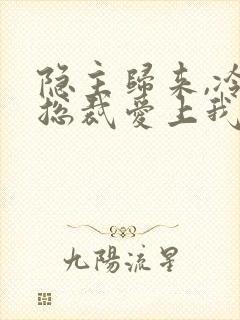 隐主歸来,冷
总裁爱上我
九陽流星